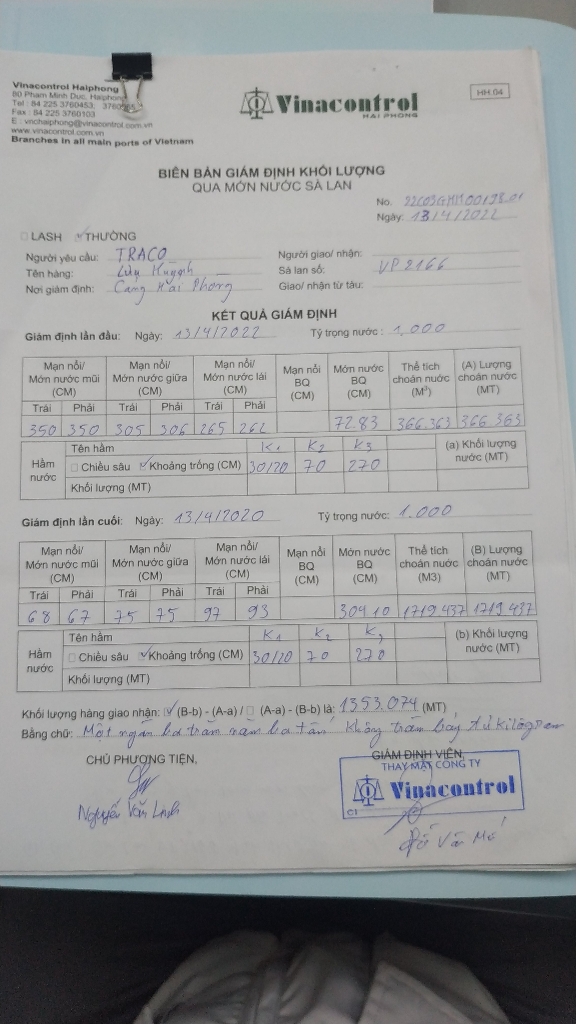 Vinacontrol Haiphong
80 Pham Minh Duc, Haiphong
Tel : 84 225 3760453,
Fax : 84 225 3760103
E : vnchaiphong@vinacontrol.com.vn
www.vinacontrol.com.vn
Branches in all main ports of Vietnam
Vinacontrol
HAI PHONG
HH.04
BIÊN BẢN GIÁM ĐỊNH KHỐI LƯỢNG
QUA MỚN NƯỚC SÀ LAN
No.
Ngày: 13/4/2022
LASH THƯỜNG
Người yêu cầu: TRACO Người giao/ nhận:
Tên hàng: Lưu Huỳnh Sà lan số: VP 2166
Nơi giám định: Cảng Hải Phòng Giao/ nhận từ tàu:
KẾT QUẢ GIÁM ĐỊNH
Giám định lần đầu: Ngày: 13/4/2022 Tỷ trọng nước : 1.000
Mạn nổi/ Mớn nước mũi (CM) Mạn nổi/ Mớn nước giữa (CM) Mạn nổi/ Mớn nước lái (CM) Mạn nổi BQ (CM) Mớn nước BQ (CM) Thể tích choán nước (M³) (A) Lượng choán nước (MT)
Trái Phải Trái Phải Trái Phải
350 350 305 306 265 262 72.83 366.363 366.363
Hầm nước Tên hầm K1 K2 K3 (a) Khối lượng nước (MT)
Chiều sâu Khoảng trống (CM) 30/20 70 270
Khối lượng (MT)
Giám định lần cuối: Ngày: 13/4/2020 Tỷ trọng nước: 1.000
Mạn nổi/ Mớn nước mũi (CM) Mạn nổi/ Mớn nước giữa (CM) Mạn nổi/ Mớn nước lái (CM) Mạn nổi BQ (CM) Mớn nước BQ (CM) Thể tích choán nước (M3) (B) Lượng choán nước (MT)
Trái Phải Trái Phải Trái Phải
68 67 75 75 97 93 309.10 1719.437 1719.437
Hầm nước Tên hầm K1 K2 K3 (b) Khối lượng nước (MT)
Chiều sâu Khoảng trống (CM) 30/20 70 270
Khối lượng (MT)
Khối lượng hàng giao nhận: (B-b) - (A-a) / (A-a) - (B-b) là: 1353.074 (MT)
Bằng chữ: Một ngàn ba trăm năm ba tấn Không trăm bảy tư kilôgam
CHỦ PHƯƠNG TIỆN, GIÁM ĐỊNH VIÊN,
THAY MẶT CÔNG TY
Vinacontrol
C1
Nguyễn Văn Linh